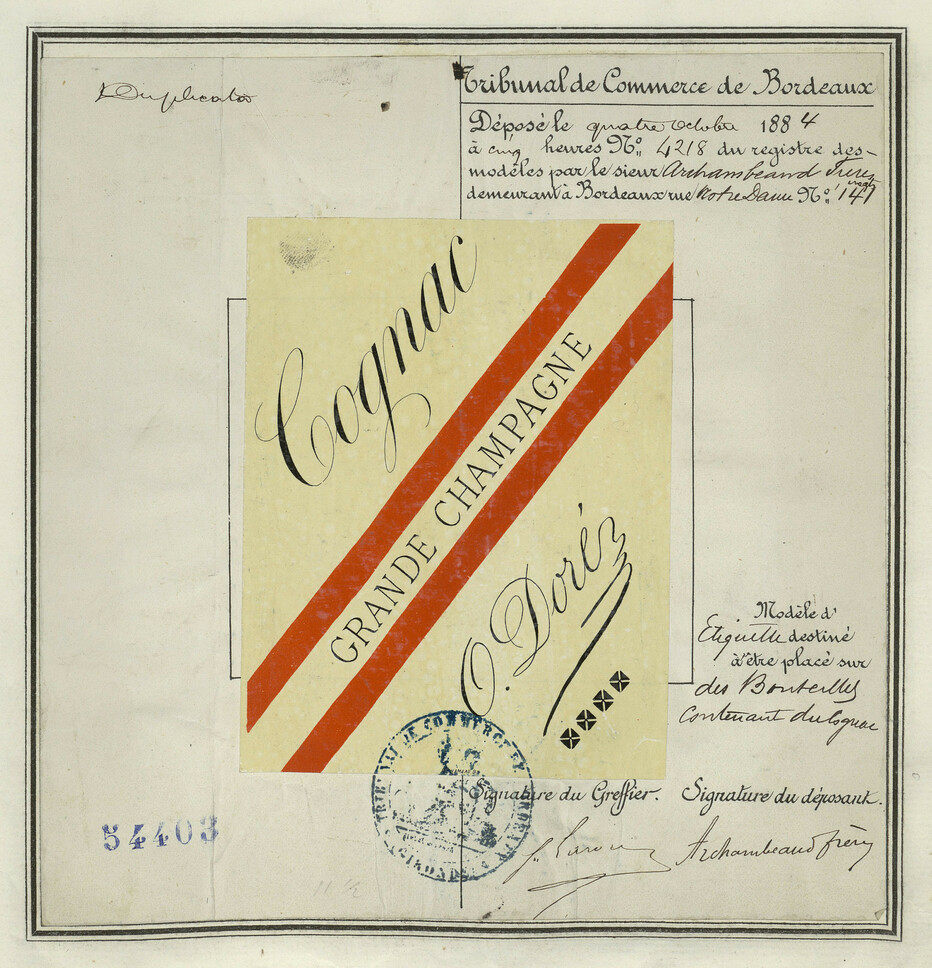 Duplicata
Tribunal de Commerce de Bordeaux
Déposé le quatre Octobre 1884
à cinq heures No. 4218 du registre des
modèles par le sieur Archambeaud Frères
demeurant à Bordeaux rue Notre Dame No. 141
Cognac
GRANDE CHAMPAGNE
O. Doré
Modèle d'
Etiquette destiné
à être placé sur
des Bouteilles
Contenant du Cognac
TRIBUNAL DE COMMERCE DE BORDEAUX
GIRONDE
Signature du Greffier. Signature du déposant.
Archambeaud frères
54403